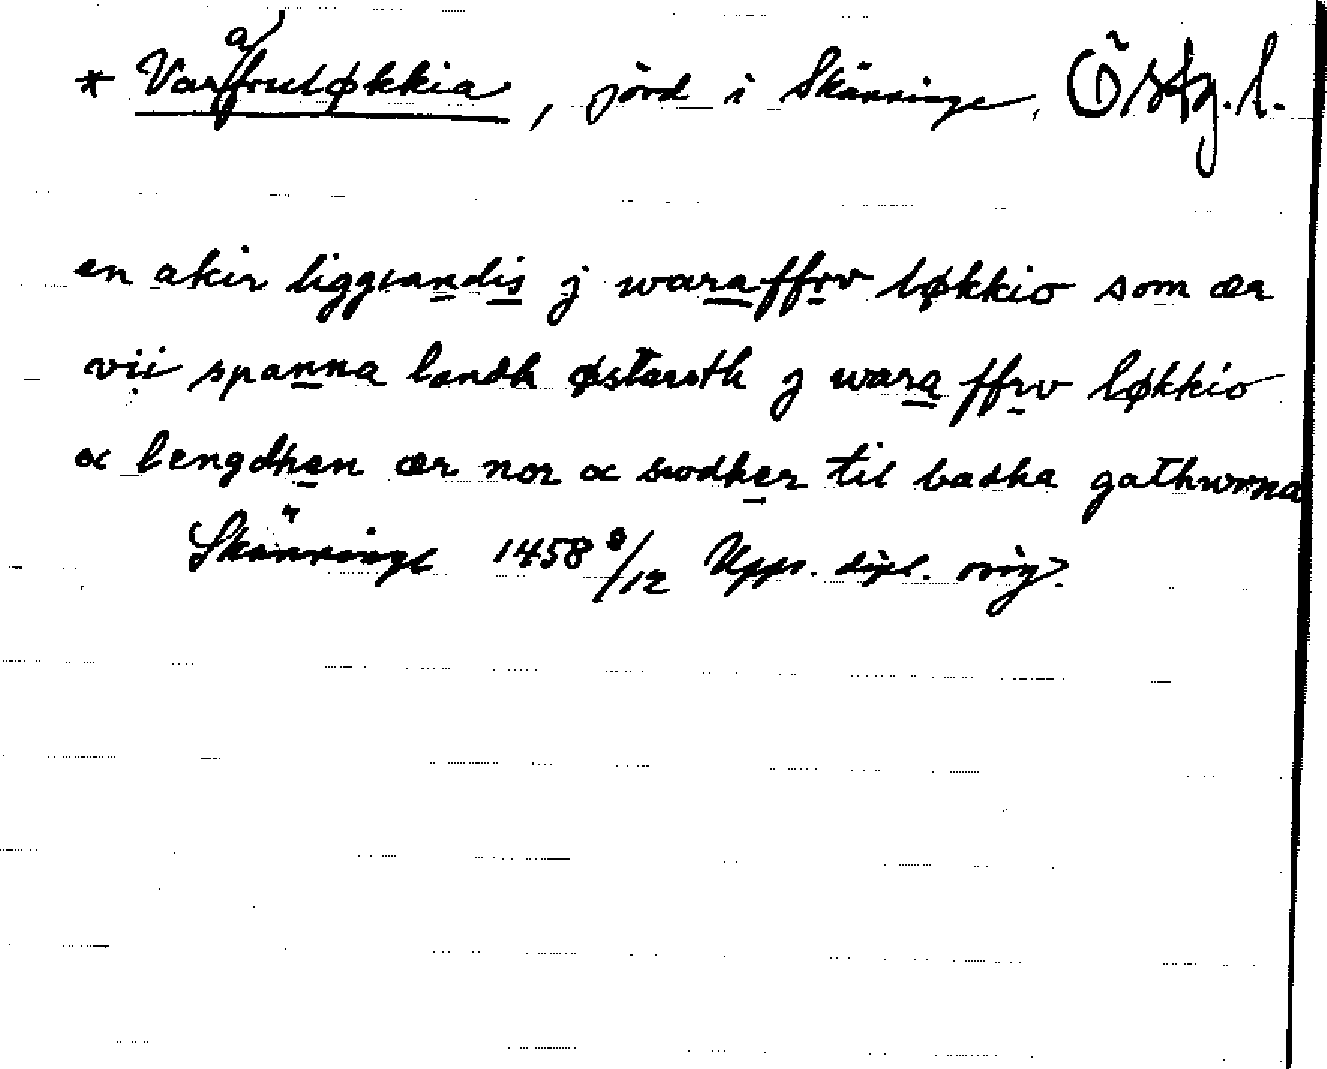 * Varafruløkkia, jord i Skänninge, Östg. l.
en akir liggiandis j wara ffrv løkkio som ær
vii spanna landh østarsth j wara ffrv løkkio
oc lengdhen ær nor oc swdher til badha gathwrna
Skänninge 1458 8/12 Upps. dipl. orig.